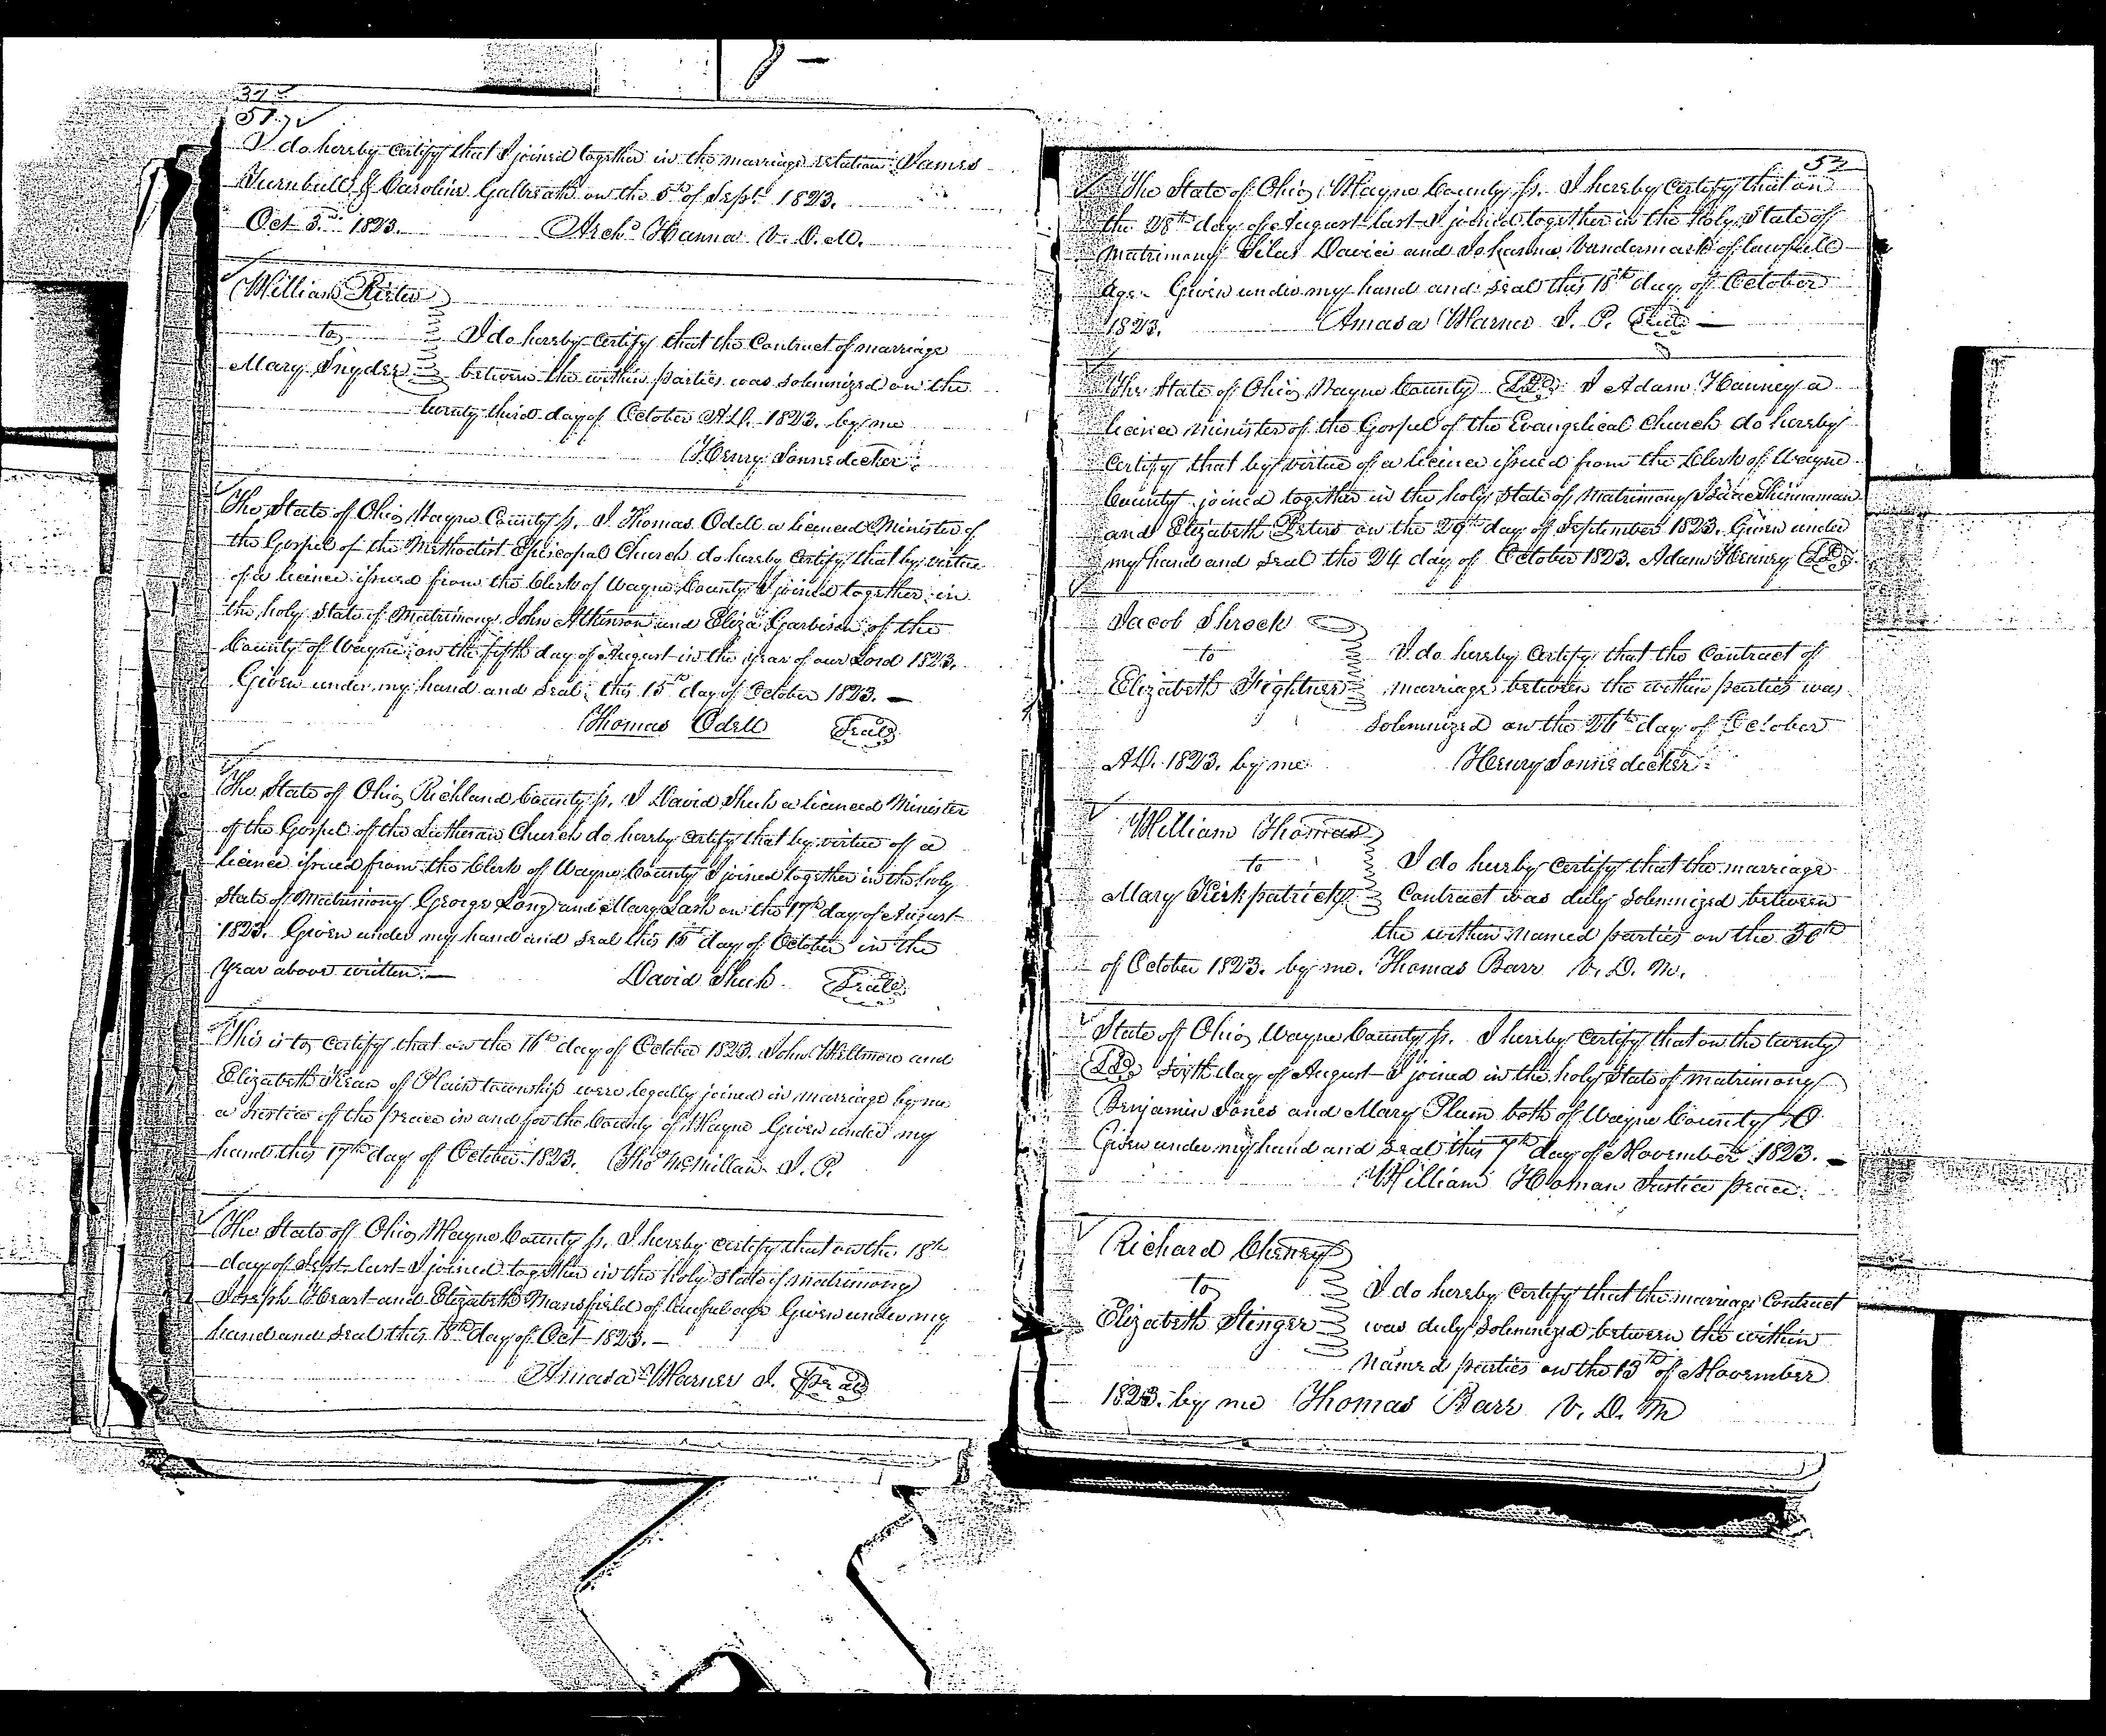 51
I do hereby certify that I joined together in the marriage relation James
Turnbull & Caroline Galbreath on the 5th of Sept. 1823.
Oct 3rd 1823. Archd Hanna V. D. M.
William
to I do hereby certify that the Contract of marriage
Mary Snyder between the within parties was solemnized on the
twenty third day of October A.D. 1823. by me
Henry Sonnedecker
The State of Ohio Wayne County ss. I Thomas Odell a licenced Minister of
the Gospel of the Methodist Episcopal Church do hereby certify that by virtue
of a licence issued from the Clerk of Wayne County I joined together in
the holy state of Matrimony John Atkinson and Eliza Garbison of the
County of Wayne on the fifth day of August in the year of our Lord 1823.
Given under my hand and seal this 15th day of October 1823. —
Thomas Odell Seal
The State of Ohio Richland County ss. I David Shuh a licenced Minister
of the Gospel of the Lutheran Church do hereby certify that by virtue of a
licence issued from the Clerk of Wayne County I joined together in the holy
State of Matrimony George Long and Mary Lash on the 17th day of August
1823. Given under my hand and seal this 15th day of October in the
year above written. — David Shuh Seal
This is to certify that on the 16th day of October 1823. John and
Elizabeth of Plain township were legally joined in marriage by me
a Justice of the peace in and for the County of Wayne Given under my
hand this 17th day of October 1823. Thos McMillan J. P.
The State of Ohio Wayne County ss. I hereby certify that on the 18th
day of Sept last I joined together in the holy State of matrimony
Joseph Heart and Elizabeth Mansfield of lawful age Given under my
hand and seal this 18th day of Oct 1823. —
Amasa Warner J. Seal
52
The State of Ohio Wayne County ss. I hereby certify that on
the 28th day of August last I joined together in the Holy State of
Matrimony Silas Davice and Johanna Vandemark of lawfull
age. Given under my hand and seal this 18th day of October
1823. Amasa Warner J. P. Seal —
The State of Ohio Wayne County I Adam Hanney a
licence minister of the Gospel of the Evangelical Church do hereby
certify that by virtue of a licence issued from the Clerk of Wayne
County joined together in the holy State of Matrimony Isaac Shinnaman
and Elizabeth Peters on the 29th day of September 1823. Given under
my hand and seal the 24 day of October 1823. Adam Henney
Jacob Shrock
to I do hereby certify that the contract of
Elizabeth Fightner marriage between the within parties was
solemnized on the 26th day of October
A.D. 1823. by me Henry Sonnedecker
William Thomas
to I do hereby certify that the marriage
Mary Kirkpatrick Contract was duly solemnized between
the within named parties on the 30th
of October 1823. by me. Thomas Barr V. D. M.
State of Ohio Wayne County ss. I hereby certify that on the twenty
sixth day of August I joined in the holy state of matrimony
Benjamin Jones and Mary Plum both of Wayne County O
Given under my hand and seal this 7th day of November 1823. —
William Homan Justice peace.
Richard Cheney
to I do hereby certify that the marriage Contract
Elizabeth Stinger was duly solemnized between the within
named parties on the 13th of November
1823. by me Thomas Barr V. D. M